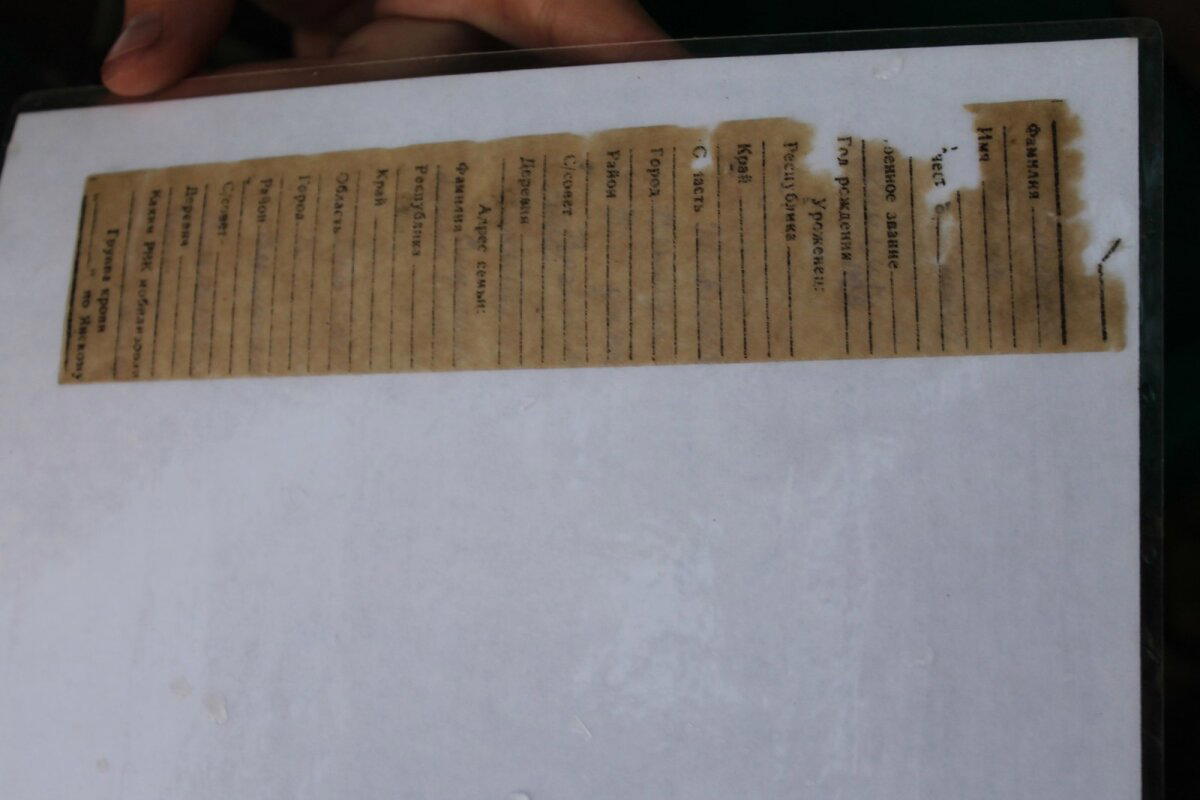 Фамилия
Имя
чест
енное звание
Год рождения
Уроженец:
Республика
Край
Область
Город
Район
С/совет
Деревня
Адрес семьи:
Фамилия
Республика
Край
Область
Город
Район
С/совет
Деревня
Каким РВК мобилизован
Группа крови
по Янскому